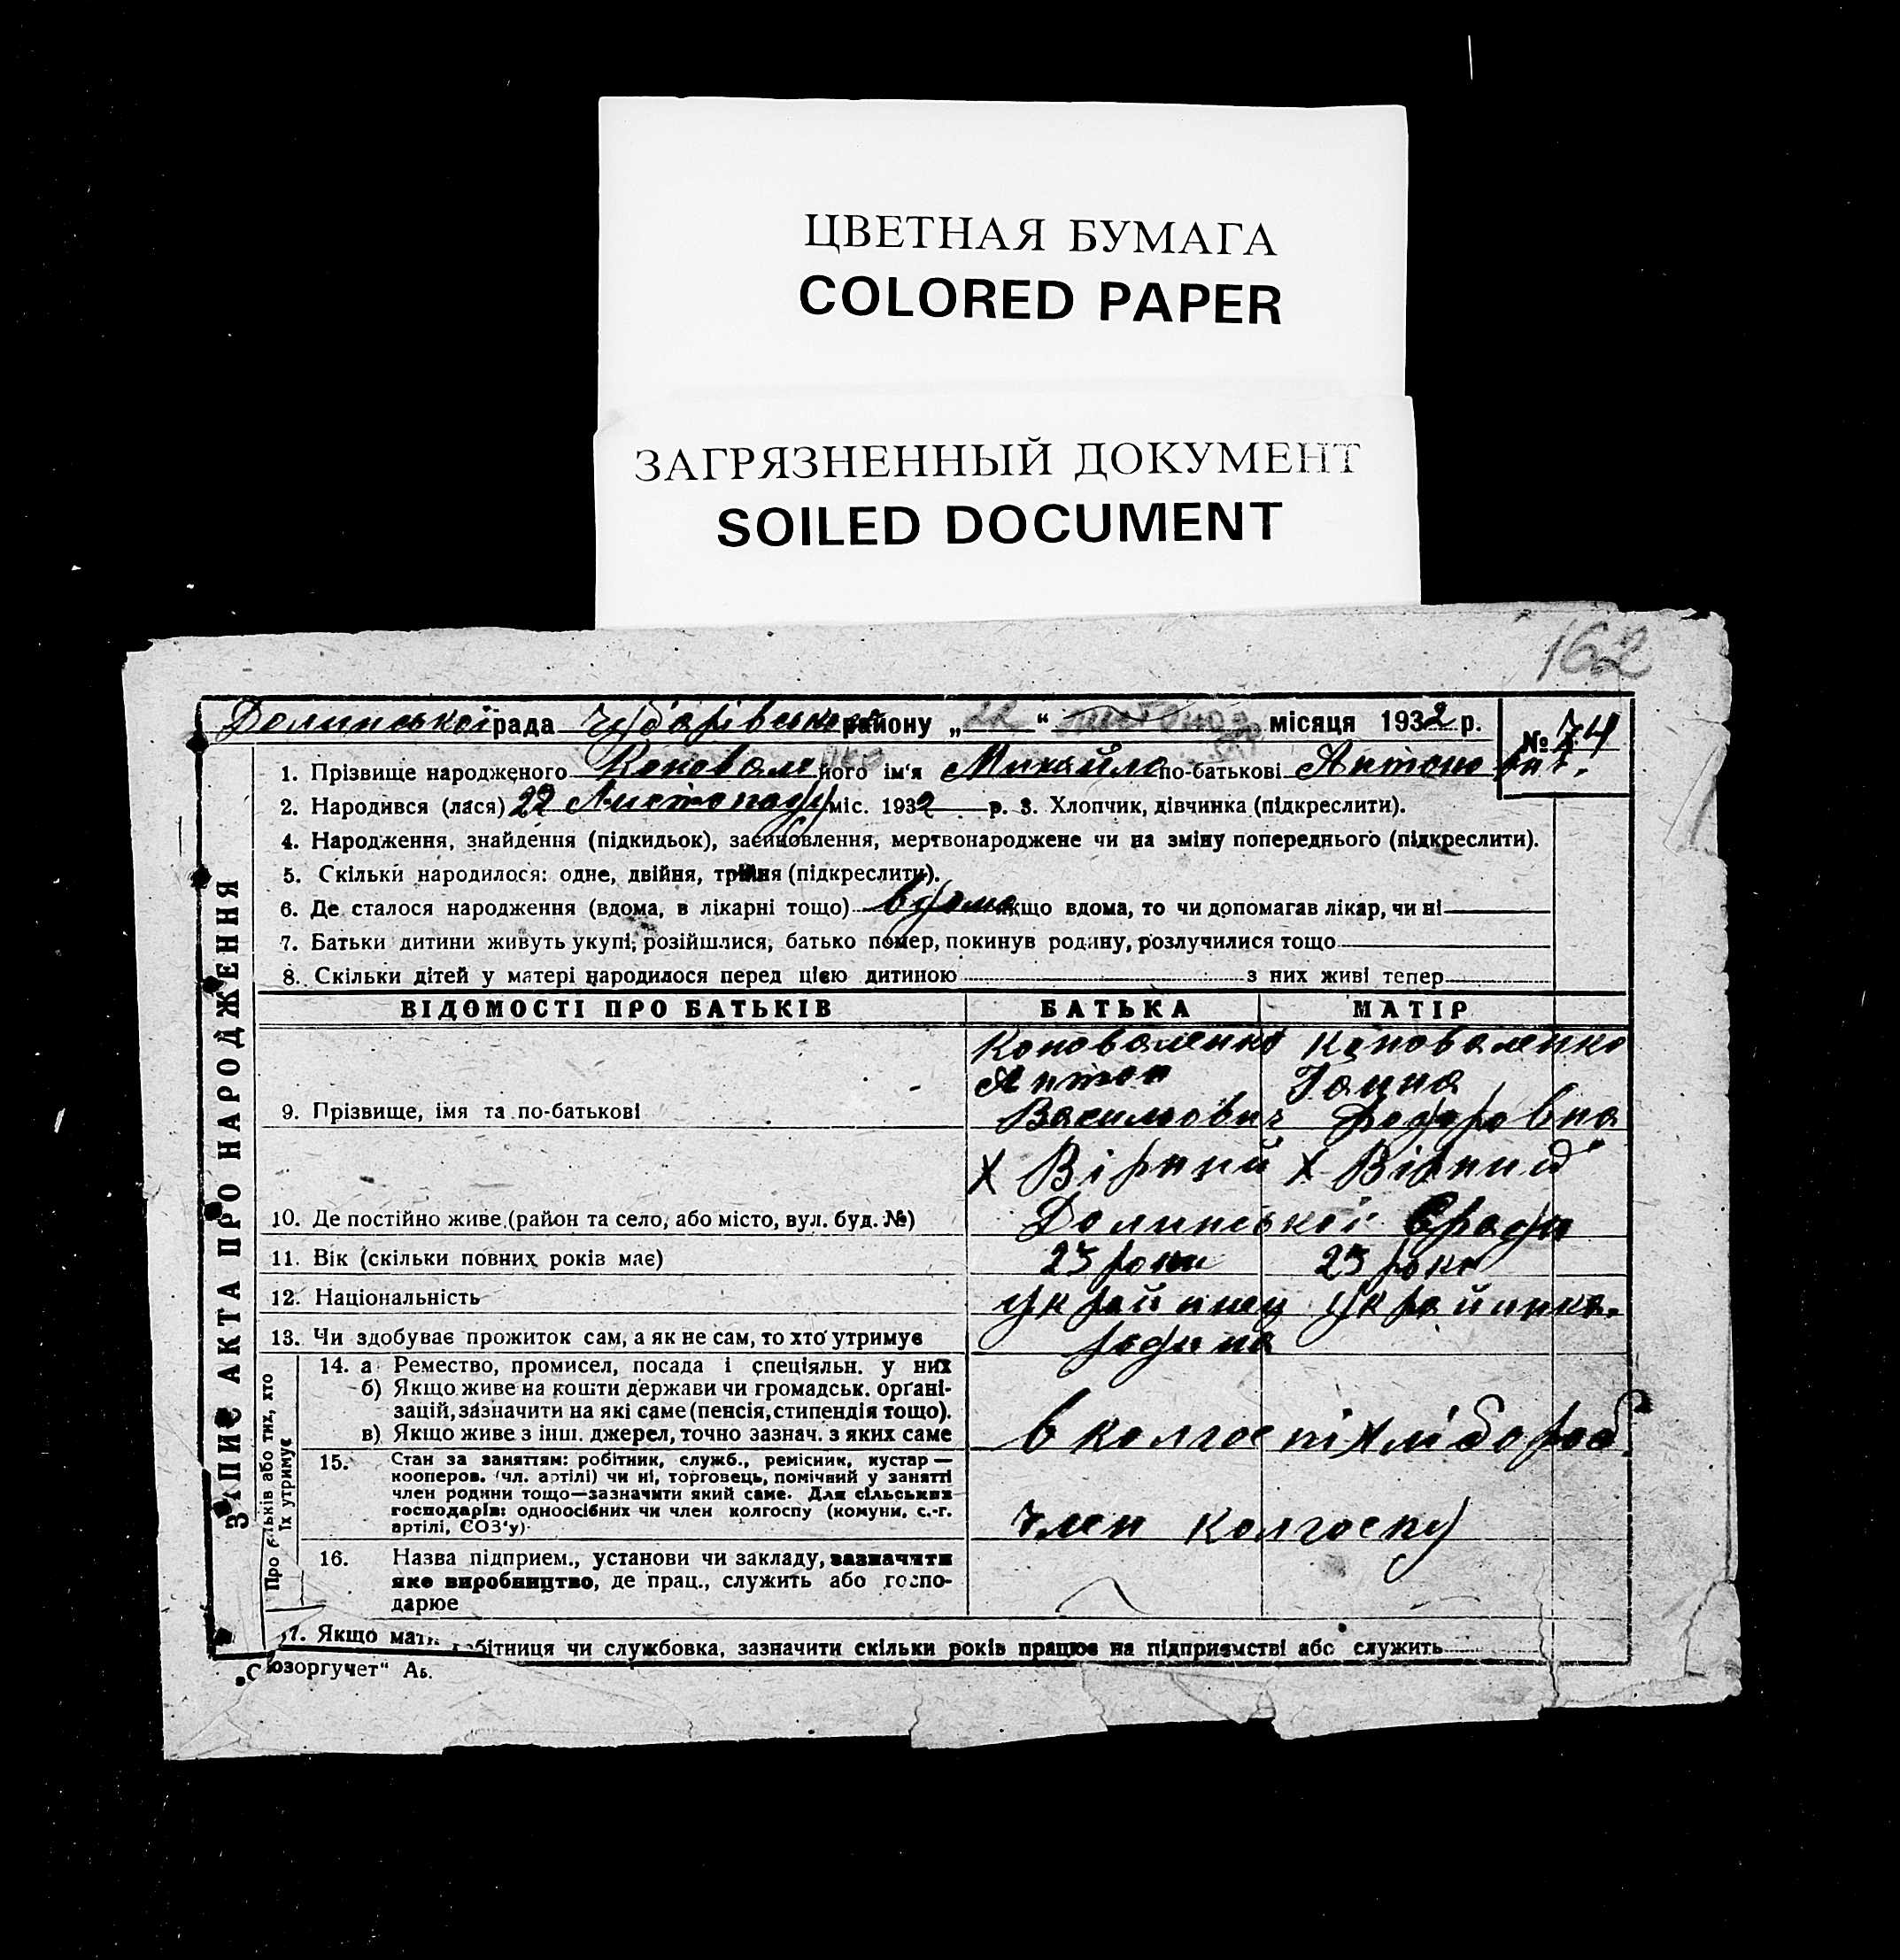 ЦВЕТНАЯ БУМАГА
COLORED PAPER
ЗАГРЯЗНЕННЫЙ ДОКУМЕНТ
SOILED DOCUMENT
162
Долинської рада Чубарівськ району „22“ листопада місяця 1932 р.
№ 74
1. Прізвище народженого Коваленко його ім'я Михайло по-батькові Антонович
2. Народився (лася) 22 Листопаду міс. 1932 р. 3. Хлопчик, дівчинка (підкреслити).
4. Народження, знайдення (підкидьок), засиновлення, мертвонароджене чи на зміну попереднього (підкреслити).
5. Скільки народилося: одне, двійня, трійня (підкреслити).
6. Де сталося народження (вдома, в лікарні тощо) вдома якщо вдома, то чи допомагав лікар, чи ні
7. Батьки дитини живуть укупі, розійшлися, батько помер, покинув родину, розлучилися тощо
8. Скільки дітей у матері народилося перед цією дитиною з них живі тепер
ЗАПИС АКТА ПРО НАРОДЖЕННЯ
ВІДОМОСТІ ПРО БАТЬКІВ БАТЬКА МАТІР
Коноваленко Коноваленко
Антон Ганна
9. Прізвище, імя та по-батькові Васильович Федоровна
х Вірний х Вірний
10. Де постійно живе (район та село, або місто, вул. буд. №) Долинської
11. Вік (скільки повних років має) 23 роки 23 роки
12. Національність Украйинец Украйинка.
13. Чи здобуває прожиток сам, а як не сам, то хто утримує родина
Про батьків або тих, хто їх утримує
14. а Ремество, промисел, посада і спеціяльн. у них
б) Якщо живе на кошти держави чи громадськ. орґані-
зацій, зазначити на які саме (пенсія, стипендія тощо).
в) Якщо живе з інш. джерел, точно зазнач. з яких саме в колгоспі хлібороб.
15. Стан за заняттям: робітник, служб., ремісник, кустар —
кооперов. (чл. артілі) чи ні, торговець, помічний у занятті
член родини тощо—зазначити який саме. Для сільських
господарів: одноосібних чи член колгоспу (комуни, с.-г.
артілі, СОЗ'у). Член колгоспу
16. Назва підприєм., установи чи закладу, зазначити
яке виробництво, де прац., служить або госпо-
дарює
17. Якщо мати робітниця чи службовка, зазначити скільки років працює на підприємстві або служить
„Союзоргучет“